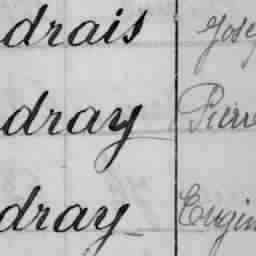 drais Jose
dray Pierre
dray Eugin